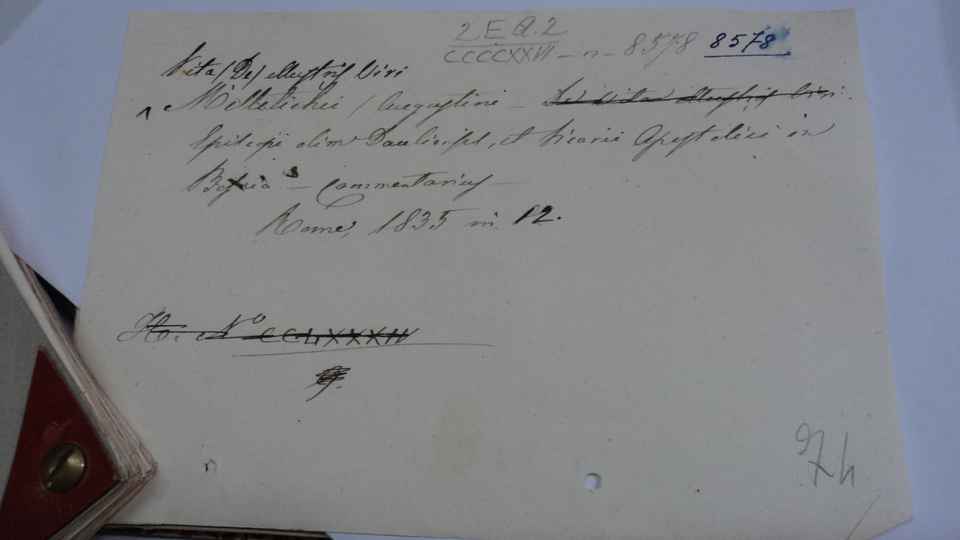 2 E Q. 2
CCCCXXVI – n – 8578 8578
Vita (De) illustris Viri
Milletichii (Augustini – De vita illustris Viri.
Episcopi olim Dauliensis, et Vicarii Apostolici in
Bosnia – Commentarius –
Rome, 1835 in 12.
H. No CCLXXXIV
974